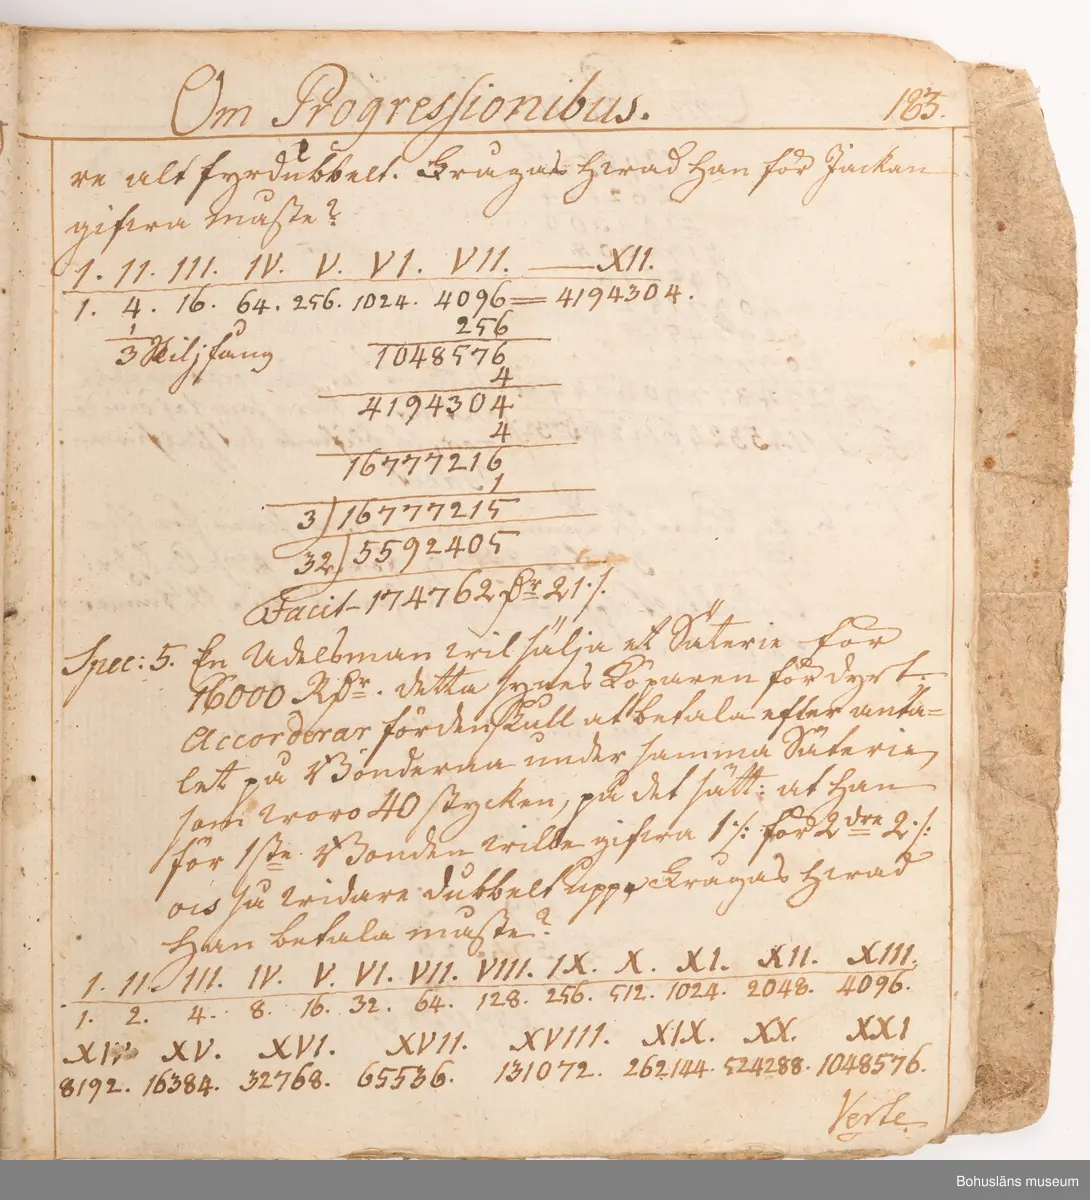 Om Progressionibus. 183.
re alt fyrdubbelt. Fragas hwad han för Jackan
gifwa måste?
I. II. III. IV. V. VI. VII. — XII.
1. 4. 16. 64. 256. 1024. 4096 = 4194304.
1 256
3 1048576
4
4194304
4
16777216
1
3) 16777215
32) 5592405
Facit 174762 Rr 21 ./.
Spec: 5. En Adelsman wil sälja et Säterie för
16000 Rdr. detta synes Köparen för dyrt.
Accorderar fördenskull at betala efter anta=
let på Bönderna under samma Säterie,
som woro 40 stycken, på det sätt: at han
för 1ste Bonden wille gifwa 1 ./. för 2dre 2 ./:
ois så widare dubbelt upp. Fragas hwad
han betala måste?
I. II. III. IV. V. VI. VII. VIII. IX. X. XI. XII. XIII.
1. 2. 4. 8. 16. 32. 64. 128. 256. 512. 1024. 2048. 4096.
XIV. XV. XVI. XVII. XVIII. XIX. XX. XXI
8192. 16384. 32768. 65536. 131072. 262144. 524288. 1048576.
Verte.
Bohusläns museum